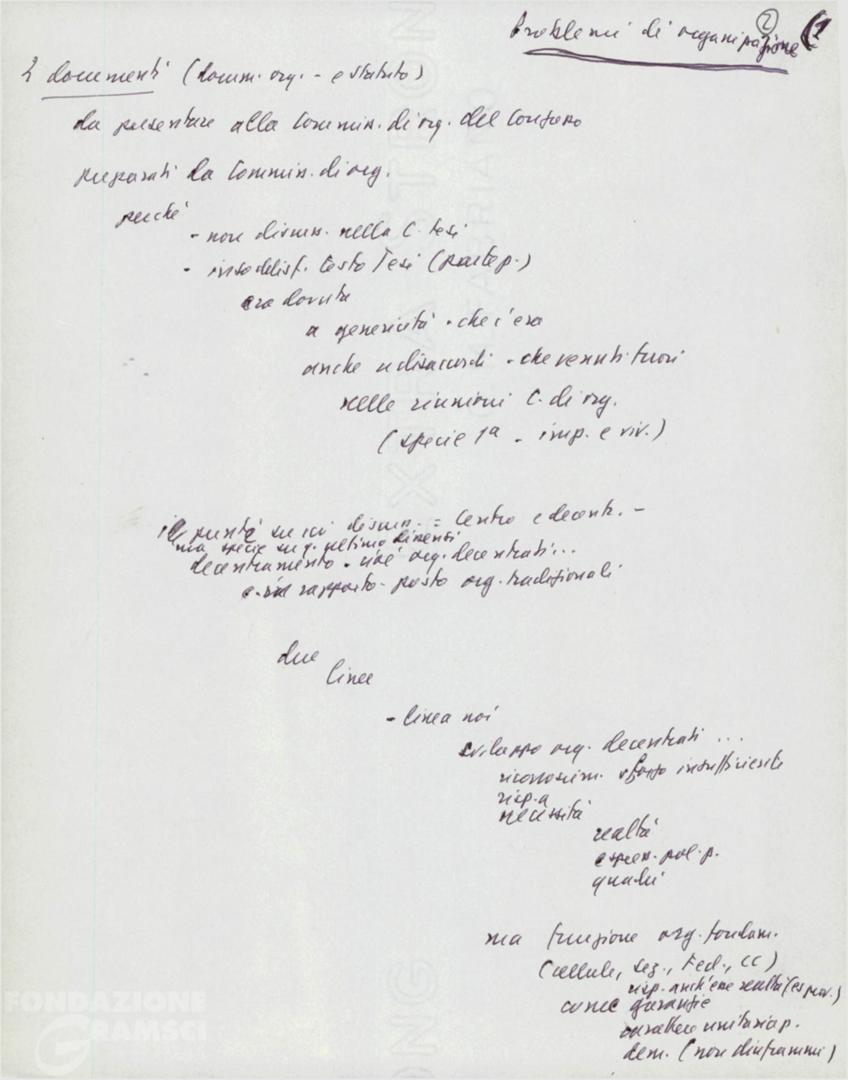 ② (1
Problemi di organizzazione
2 documenti (docum. org. - e statuto)
da presentare alla Commiss. di org. del Congresso
preparati da Commiss. di org.
perché
- non discuss. nella C. Tesi
- insoddisf. testo Tesi (partep.)
era dovuta
a genericità - che c'era
anche a disaccordi - che venuti fuori
nelle riunioni C. di org.
(specie 1a - imp. e viv.)
punti su cui discuss. = centro e decentr. -
ma specie su q. ultimo dissensi
decentramento - cioè org. decentrati...
e rapporto - posto org. tradizionali
due
linee
- linea noi
sviluppo org. decentrati ...
riconoscim. sforzo insufficiente
risp. a
necessità
realtà
espress. pol. p.
quadri
ma funzione org. fondam.
(cellule, sez., Fed., CC)
risp. anch'esse realtà (es prov.)
come garanzie
carattere unitario p.
dem. (non diaframmi)
FONDAZIONE
GRAMSCI